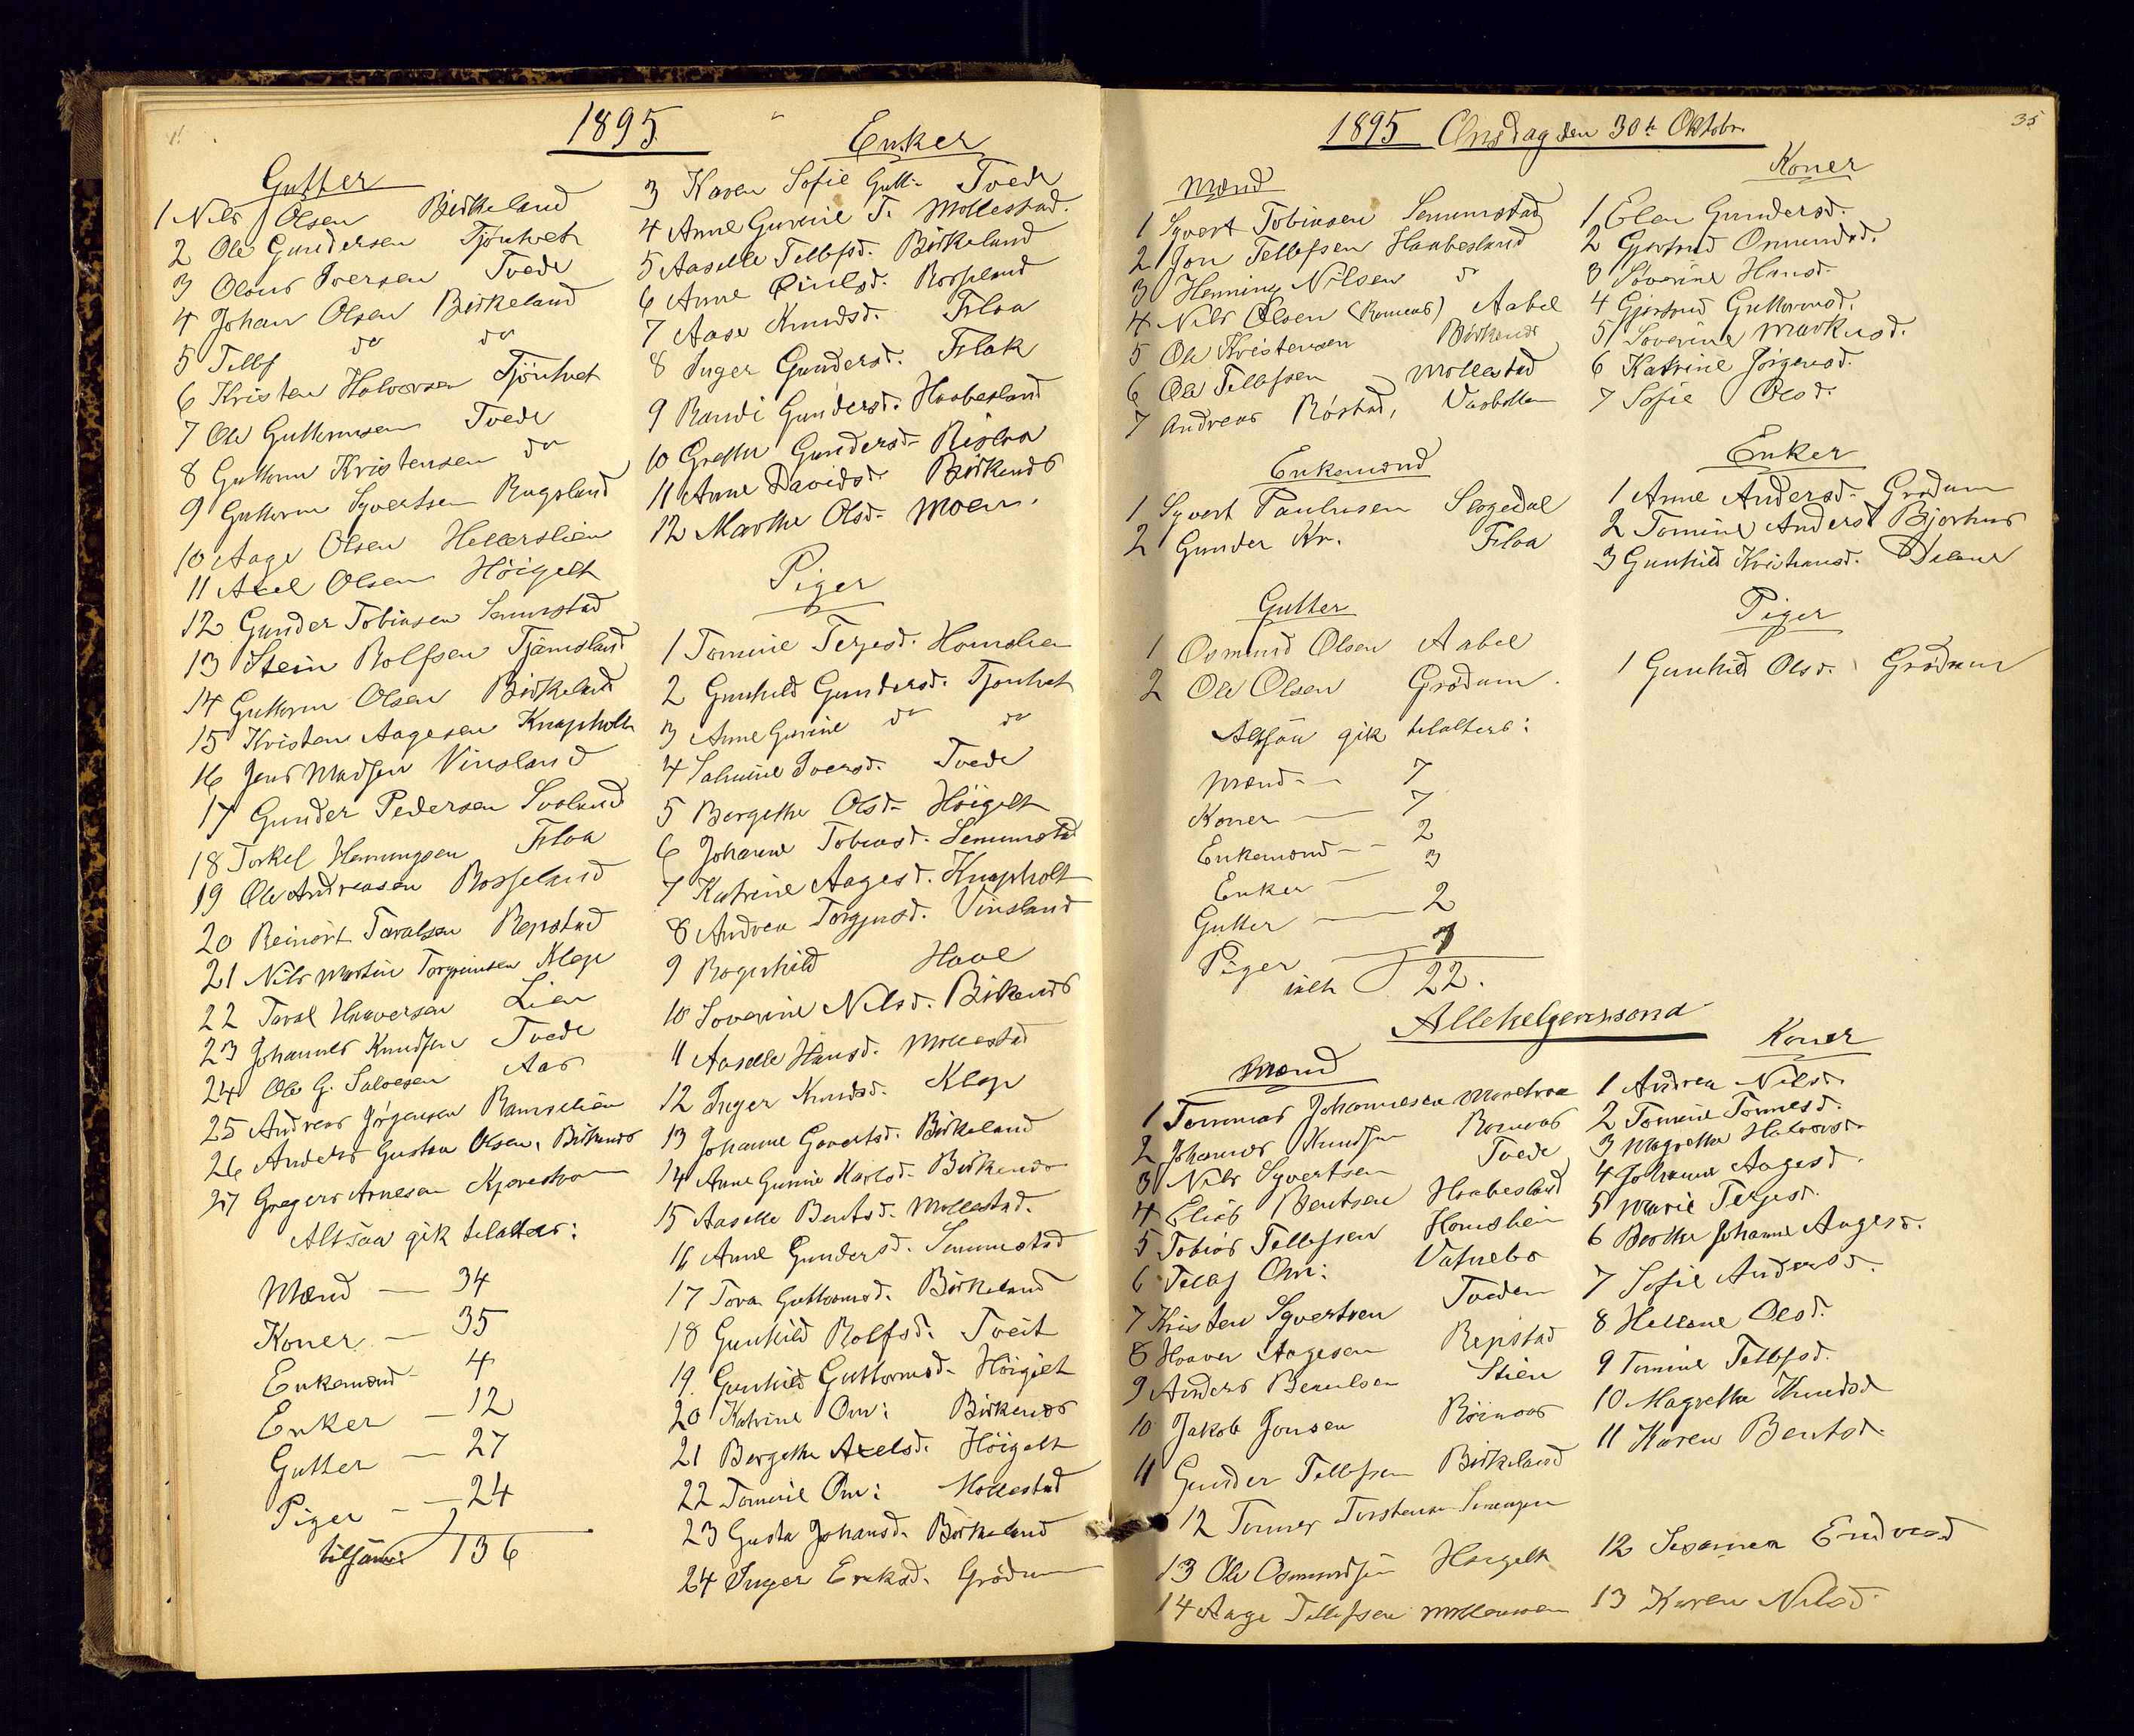 1895
Gutter
1 Nils Olsen Birkeland
2 Ole Gundersen Tjönhvet
3 Olaus Iversen Tvede
4 Johan Olsen Birkeland
5 Tellf do do
6 Kristen Halvorsen Tjönhvet
7 Ole Guttormsen Tvede
8 Guttorm Kristensen do
9 Guttorm Syvertsen Rugsland
10 Aage Olsen Hellerslien
11 Axel Olsen Höigelt
12 Gunder Tobiasen Senumstad
13 Stein Rolfsen Tjämsland
14 Guttorm Olsen Birkeland
15 Kristen Aagesen Knapholt
16 Jens Madsen Vinsland
17 Gunder Pedersen Svaland
18 Torkel Henningsen Flaa
19 Ole Andreasen Rosseland
20 Reinert Taralsen Repstad
21 Nils Martin Torgrimsen Klep
22 Taral Haaversen Lien
23 Johannes Knudsen Tvede
24 Ole G. Salvesen Aas
25 Andreas Jörgensen Ramselien
26 Anders Gustav Olsen, Birkenes
27 Gregers Arnesen
Altsaa gik tilalters:
Mænd — 34
Koner — 35
Enkemænd — 4
Enker — 12
Gutter — 27
Piger — 24
tilsam: 136
Enker
3 Karen Sofie Gutt. Tvede
4 Anne Gurine T. Mollestad.
5 Aaselle Tellefsd. Birkeland
6 Anne Eivilsd. Rosseland
7 Aase Knudsd. Flaa
8 Inger Gundersd. Flak
9 Randi Gundersd. Haabesland
10 Grethe Gundersd. Rislaa
11 Anne Davidsd. Birkenes
12 Marthe Olsd. Moen.
Piger
1 Tomine Terjesd. Homslien
2 Gunhild Gundersd. Tjönhvet
3 Anne Gurine do do
4 Salmine Iversd. Tvede
5 Bergethe Olsd. Höigelt
6 Johanne Tobiasd. Senumstad
7 Katrine Aagesd. Knapholt
8 Andrea Torgjusd. Vinsland
9 Ragnhild Have
10 Severine Nilsd. Birkenes
11 Aaselle Hansd. Mollestad
12 Inger Knudsd. Klep
13 Johanne Govertsd. Birkeland
14 Anne Gurine Karlsd. Birkenes
15 Aaselle Bentsd. Mollestad.
16 Anne Gundersd. Senumstad
17 Tora Guttormsd. Birkeland
18 Gunhild Rolfsd. Tveit
19 Gunhild Guttormsd. Höigelt
20 Katrine Om: Birkenes
21 Bergethe Axelsd. Höigelt
22 Tomine Om: Mollestad
23 Gusta Johansd. Birkeland
24 Inger Eriksd. Grödum
35
1895 Onsdag den 30te Oktobr.
Mænd
1 Syvert Tobiasen Senumstad
2 Jon Tellefsen Haabesland
3 Henning Nilsen do
4 Nils Olsen (Ramens) Aabel
5 Ole Kristensen Birkenes
6 Ole Tellefsen Mollestad
7 Andreas Röstad,
Koner
1 Elen Gundersd.
2 Gjertrud Osmundsd.
3 Severine Hansd.
4 Gjertrud Guttormsd.
5 Severine Markusd.
6 Katrine Jörgensd.
7 Sofie Olsd.
Enkemænd
1 Syvert Paulusen Søgedal
2 Gunder Kr. Flaa
Enker
1 Anne Andersd. Grødum
2 Tomine Andersd Bjorhus
3 Gunhild Kristiansd.
Gutter
1 Osmund Olsen Aabel
2 Ole Olsen Grødum.
Piger
1 Gunhild Olsd. Grødum
Altsaa gik tilalters:
Mænd — 7
Koner — 7
Enkemænd — 2
Enker — 3
Gutter — 2
Piger — 1
ialt 22.
Allehelgenssønd
Mænd
1 Tommas Johannesen
2 Johannes Knudsen
3 Nils Syvertsen Tvede
4 Elias Bentsen Haabesland
5 Tobias Tellefsen Homslien
6 Tellef Om: Vatnebo
7 Kristen Syvertsen Tveden
8 Haaver Aagesen Repstad
9 Anders Stien
10 Jakob Jonsen
11 Gunder Tellefsen Birkeland
12 Tonnes Torstensen
13 Ole Osmundsen Høigelt
14 Aage Tellefsen
Koner
1 Andrea Nilsd.
2 Tomine Tonnesd.
3 Magrethe Halvorsd.
4 Johanne Aagesd.
5 Marie Terjesd.
6 Berthe Johanne Aagesd.
7 Sofie Andersd.
8 Hellene Olsd.
9 Tomine Tellefsd.
10 Magrethe Knudsd
11 Karen Bentsd.
12 Susanna
13 Karen Nilsd.